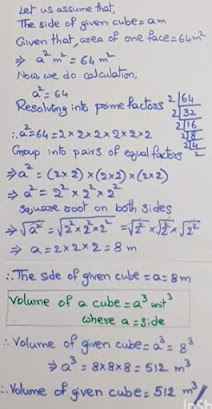 Let us assume that,
The side of given cube = a m
Given that, area of one face = 64 m²
⇒ a² m² = 64 m²
Now we do calculation,
a² = 64
Resolving into prime factors
2 | 64
2 | 32
2 | 16
2 | 8
2 | 4
2
∴ a² = 64 = 2 × 2 × 2 × 2 × 2 × 2
Group into pairs of equal factors
⇒ a² = (2×2) × (2×2) × (2×2)
⇒ a² = 2² × 2² × 2²
Square root on both sides
⇒ √a² = √2² × 2² × 2² = √2² × √2² × √2²
⇒ a = 2 × 2 × 2 = 8 m
∴ The side of given cube = a = 8 m
Volume of a cube = a³ unit³
where a = side
∴ Volume of given cube = a³ = 8³
⇒ a³ = 8 × 8 × 8 = 512 m³
∴ Volume of given cube = 512 m³